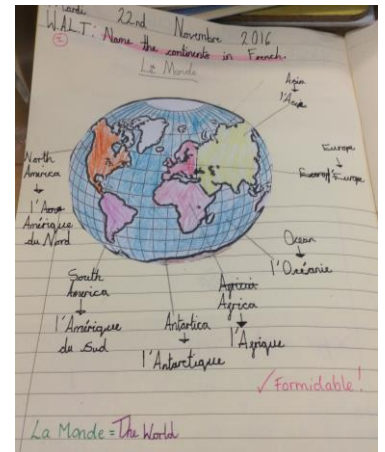 Mardi 22nd Novembre 2016
W.A.L.T: Name the continents in French.
La Monde
Asia
l'Asie
Europe
l'Europe
North
America
l'Amérique
du Nord
Ocean
l'Océanie
South
America
l'Amérique
du Sud
Africa
l'Afrique
Antartica
l'Antarctique
✓ Formidable!
La Monde = The World